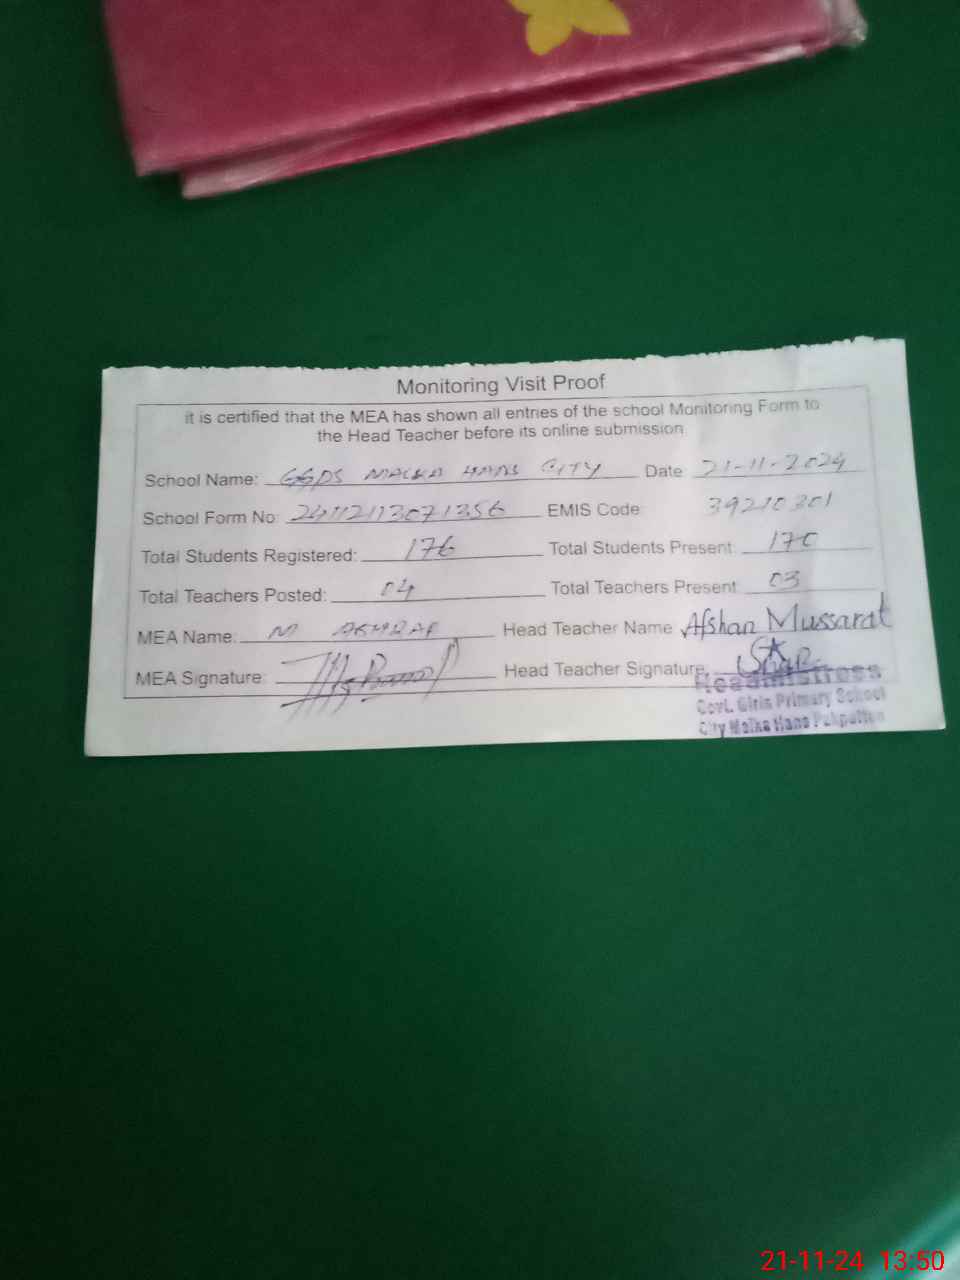 Monitoring Visit Proof
it is certified that the MEA has shown all entries of the school Monitoring Form to
the Head Teacher before its online submission
School Name: GGPS MALKA HANS CITY Date 21-11-2024
School Form No: 24112113071356 EMIS Code: 39210301
Total Students Registered: 176 Total Students Present: 170
Total Teachers Posted: 04 Total Teachers Present: 03
MEA Name: M ASHRAF Head Teacher Name Afshan Mussarat
MEA Signature: Head Teacher Signature:
Headmistress
Govt. Girls Primary School
City Malka Hans Pakpattan
21-11-24 13:50